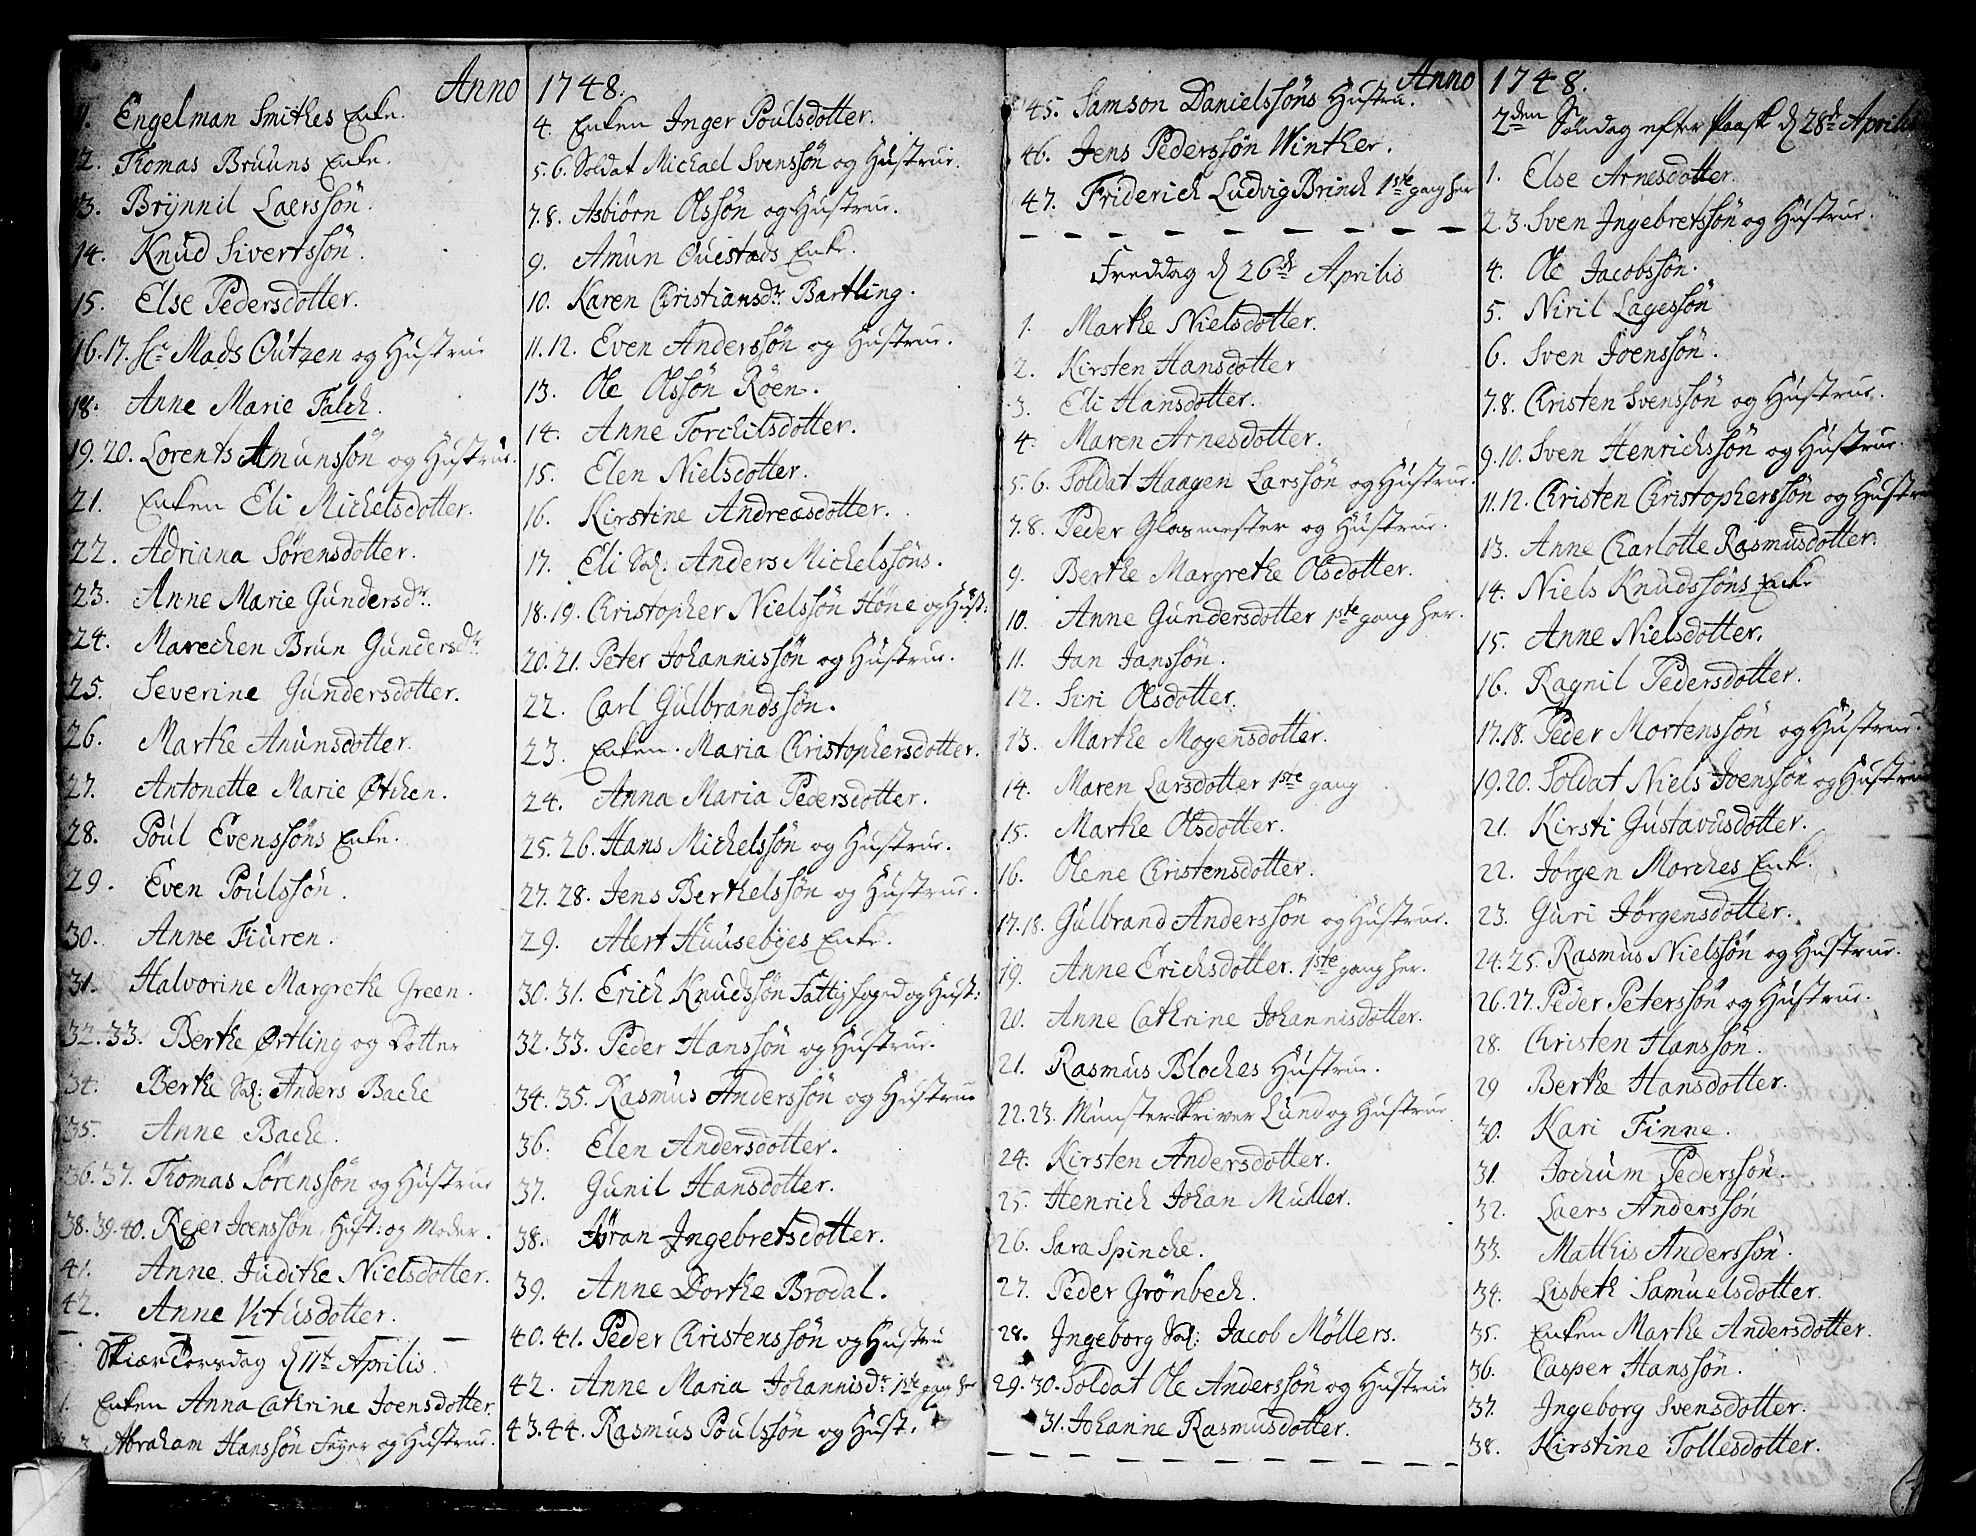 Anno 1748.
11. Engelman Smithes Enke.
12. Thomas Bruuns Enke.
13. Brynnil Laerssøn.
14. Knud Sivertssøn.
15. Else Pedersdotter.
16.17. Sr Mads Outzen og Hustrue
18. Anne Marie Falch.
19.20. Lorents Amunssøn og Hustrue.
21. Enken Eli Michelsdotter.
22. Adriana Sørensdotter.
23. Anne Marie Gundersdr.
24. Marechen Brun Gundersdr
25. Severine Gundersdotter.
26. Marthe Anunsdotter.
27. Antonette Marie Øtken.
28. Poul Evenssøns Enke.
29. Even Poulssøn.
30. Anne Fiuren.
31. Halvorine Margrethe Green.
32.33. Berthe Ørtling og Dotter
34. Berthe Sal: Anders Bache
35. Anne Bache.
36.37. Thomas Sørenssøn og Hustrue
38.39.40. Reier Joenssøn, Hust: og Moder.
41. Anne Judithe Nielsdotter.
42. Anne Vitusdotter.
Skiær Torsdag d 11te Aprilis
1. Enken Anna Cathrine Joensdotter.
2.3. Abraham Hanssøn Feyer og Hustrue.
4. Enken Inger Poulsdotter.
5.6. Soldat Michael Svenssøn og Hustrue.
7.8. Asbiørn Olssøn og Hustrue.
9. Amun Quistads Enke.
10. Karen Christiansdr Bartling.
11.12. Even Anderssøn og Hustrue.
13. Ole Olssøn Røen.
14. Anne Torchilsdotter.
15. Elen Nielsdotter.
16. Kirstine Andreasdotter.
17. Eli Sal: Anders Michelssøns.
18.19. Christopher Nielssøn Høne og Hust:
20.21. Peter Johannissøn og Hustrue.
22. Carl Gulbrandssøn.
23. Enken Maria Christophersdotter.
24. Anna Maria Pedersdotter.
25.26. Hans Michelssøn og Hustrue.
27.28. Jens Berthelssøn og Hustrue.
29. Alert Huusebyes Enke.
30.31. Erich Knudssøn Fattigfoged og Hust:
32.33. Peder Hanssøn og Hustrue.
34.35. Rasmus Anderssøn og Hustrue
36. Elen Andersdotter.
37. Gunil Hansdotter.
38. Jøran Ingebretsdotter.
39. Anne Dorthe Brodal.
40.41. Peder Christenssøn og Hustru
42. Anne Maria Johannisdr 1ste gang her
43.44. Rasmus Poulssøn og Hust.
Anno 1748.
45. Samson Danielssøns Hustru.
46. Jens Pederssøn Winther.
47. Friderich Ludvig Brinch 1ste gang her
Freddag d 26de Aprilis
1. Marthe Nielsdotter.
2. Kirsten Hansdotter
3. Eli Hansdotter.
4. Maren Arnesdotter.
5.6. Soldat Haagen Larssøn og Hustrue.
7.8. Peder Glasmester og Hustrue.
9. Berthe Margrethe Olsdotter.
10. Anne Gundersdotter 1ste gang her.
11. Jan Janssøn.
12. Siri Olsdotter.
13. Marthe Mogensdotter.
14. Maren Larsdotter 1ste gang
15. Marthe Olsdotter.
16. Olene Christensdotter.
17.18. Gulbrand Anderssøn og Hustrue.
19. Anne Erichsdotter. 1ste gang her.
20. Anne Cathrine Johannisdotter.
21. Rasmus Bloches Hustrue.
22.23. Munster-Skriver Lund og Hustrue
24. Kirsten Andersdotter.
25. Henrich Johan Muller.
26. Sara Spincke.
27. Peder Grønbech.
28. Ingeborg Sal: Jacob Møllers.
29.30. Soldat Ole Anderssøn og Hustrue
31. Johanne Rasmusdotter.
2den Søndag efter Paask d 28de Aprilis
1. Else Arnesdotter.
2.3. Sven Ingebretssøn og Hustrue.
4. Ole Jacobssøn.
5. Niril Lagessøn
6. Sven Joenssøn.
7.8. Christen Svenssøn og Hustrue.
9.10. Sven Henrichssøn og Hustrue.
11.12. Christen Christopherssøn og Hustrue
13. Anne Charlotte Rasmusdotter.
14. Niels Knudssøns Enke
15. Anne Nielsdotter.
16. Ragnil Pedersdotter.
17.18. Peder Mortenssøn og Hustrue.
19.20. Soldat Niels Joenssøn og Hustrue
21. Kirsti Gustavusdotter.
22. Jørgen Morches Enke.
23. Guri Jørgensdotter.
24.25. Rasmus Nielssøn og Hustrue.
26.27. Peder Peterssøn og Hustrue.
28. Christen Hanssøn.
29 Berthe Hansdotter.
30. Kari Finne.
31. Jochum Pederssøn.
32. Laers Anderssøn
33. Matthis Anderssøn.
34. Lisbeth Samuelsdotter.
35. Enken Marthe Andersdotter.
36. Casper Hanssøn.
37. Ingeborg Svensdotter.
38. Kirstine Tollesdotter.